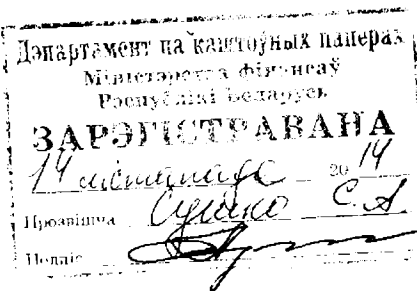 Дэпартамент па каштоўных паперах
Міністэрства фінансаў
Рэспублікі Беларусь
ЗАРЭГІСТРАВАНА
14 лістапада 2014
Прозвішча Сушко С.А
Подпіс